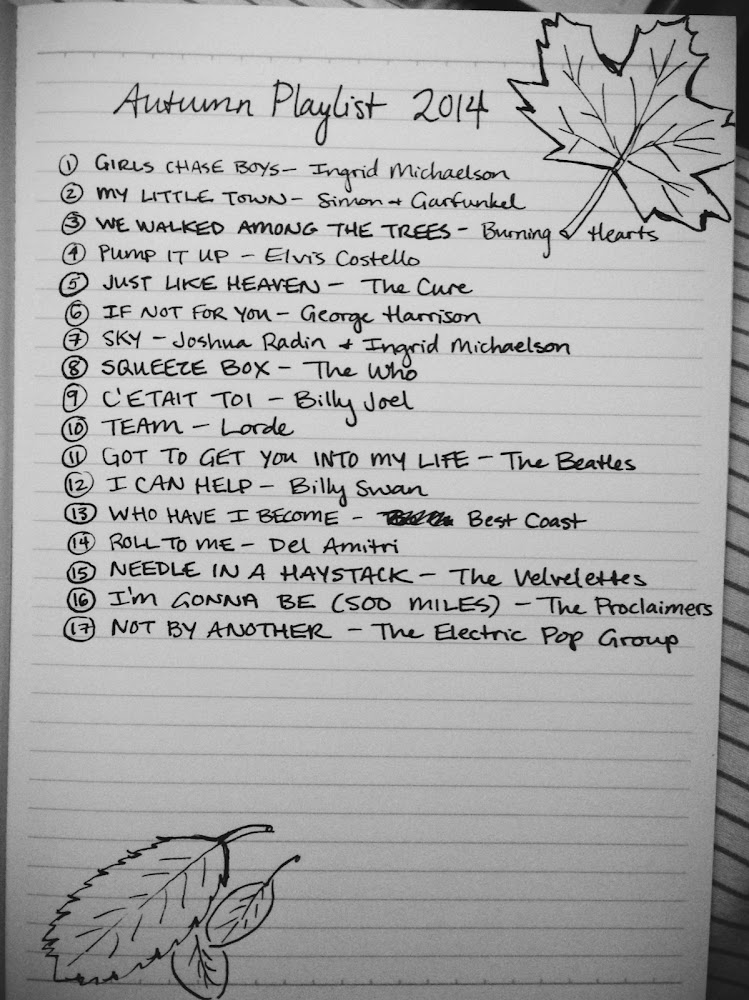 Autumn Playlist 2014
1 GIRLS CHASE BOYS - Ingrid Michaelson
2 MY LITTLE TOWN - Simon + Garfunkel
3 WE WALKED AMONG THE TREES - Burning Hearts
4 PUMP IT UP - Elvis Costello
5 JUST LIKE HEAVEN - The Cure
6 IF NOT FOR YOU - George Harrison
7 SKY - Joshua Radin + Ingrid Michaelson
8 SQUEEZE BOX - The Who
9 C'ETAIT TOI - Billy Joel
10 TEAM - Lorde
11 GOT TO GET YOU INTO MY LIFE - The Beatles
12 I CAN HELP - Billy Swan
13 WHO HAVE I BECOME - Best Coast
14 ROLL TO ME - Del Amitri
15 NEEDLE IN A HAYSTACK - The Velvelettes
16 I'M GONNA BE (500 MILES) - The Proclaimers
17 NOT BY ANOTHER - The Electric Pop Group